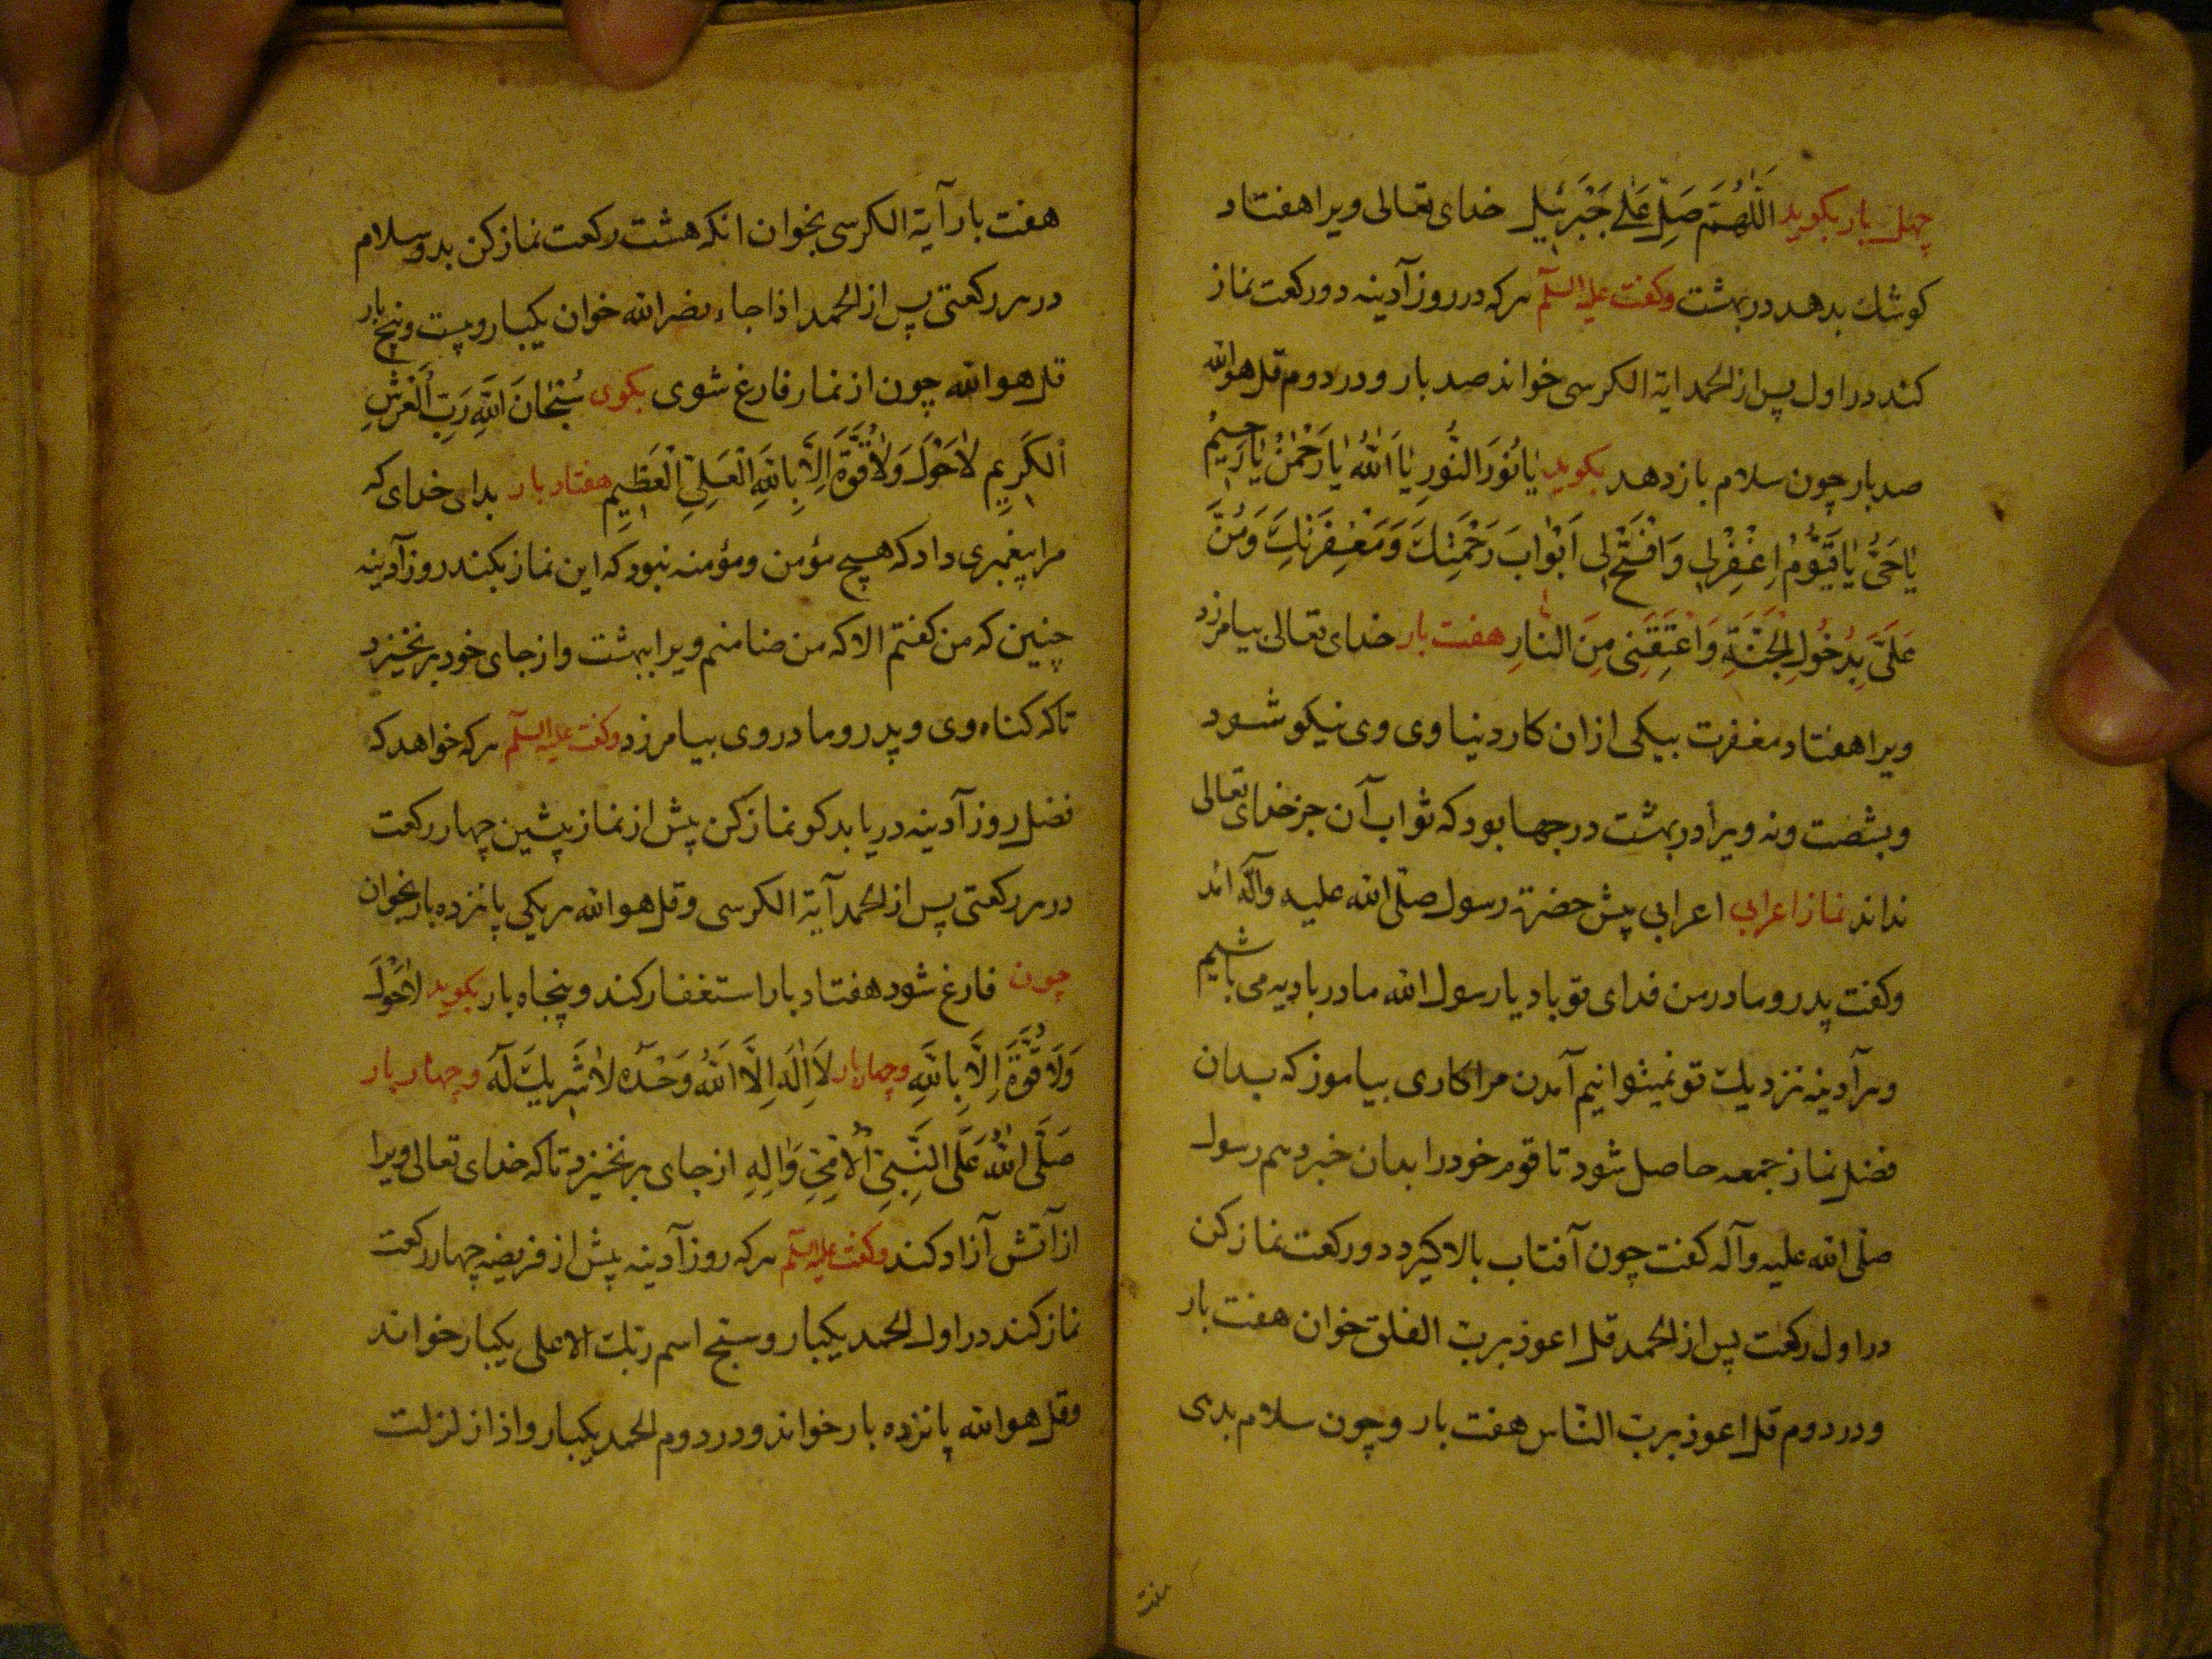 چهل بار بکوید اَللّٰهُمَّ صَلِّ عَلٰی جَبْرَئیلَ خدای تعالی ویرا هفتاد
کوشك بدهد در بهشت وکفت علیه السلم هرکه در روز آدینه دو رکعت نماز
کند در اول پس از الحمد ایة الکرسی خواند صد بار و در دوم قل هو الله
صد بار چون سلام باز دهد بکوید یٰا نُورَ النُّورِ یٰا اَللّٰهُ یٰا رَحْمٰنُ یٰا رَحیمُ
یٰا حَیُّ یٰا قَیُّومُ اِغْفِرْلی وَافْتَحْ لی اَبْوٰابَ رَحْمَتِكَ وَمَغْفِرَتِكَ وَمُنَّ
عَلَیَّ بِدُخُولِ الْجَنَّةِ وَاعْتِقْنِی مِنَ النّارِ هفت بار خدای تعالی بیامرزد
ویرا هفتاد مغفرت بیکی ازان کار دنیاوی وی نیکو شود
وبشصت ونه ویرا در بهشت درجها بود که ثواب آن جز خدای تعالی
نداند نماز اعرابی اعرابی پیش حضرة رسول صلّی الله علیه وآله امد
وکفت پدر ومادر من فدای تو باد یا رسول الله ما در بادیه می باشیم
وهر آدینه نزدیك تو نمیتوانیم آمدن مرا کاری بیاموز که بدان
فضل نماز جمعه حاصل شود تا قوم خود را بدان خبر دهم رسول
صلّی الله علیه وآله کفت چون آفتاب بالا کیرد دو رکعت نماز کن
در اول رکعت پس از الحمد قل اعوذ بربّ الفلق خوان هفت بار
ودر دوم قل اعوذ بربّ النّاس هفت بار وچون سلام بدی
هفت
هفت بار آیة الکرسی بخوان انکه هشت رکعت نماز کن بدو سلام
در هر رکعتی پس از الحمد اذا جاء نصر الله خوان یکبار وبیست وپنج بار
قل هو الله چون از نماز فارغ شوی بکوی سُبْحٰانَ اللّٰهِ رَبِّ الْعَرْشِ
الْکَرِیمِ لاٰ حَوْلَ وَلاٰ قُوَّةَ اِلاَّ بِاللّٰهِ الْعَلِیِّ الْعَظِیمِ هفتاد بار بدای خدای که
مرا پیغمبری داد که هیچ مؤمن ومؤمنه نبود که این نماز بکند روز آدینه
چنین که من کفتم الا که من ضامنم ویرا ببهشت واز جای خود برنخیزد
تا که کناه وی وپدر ومادر وی بیامرزد وکفت علیه السلم هرکه خواهد که
فضل روز آدینه دریابد کو نماز کن پیش از نماز پیشین چهار رکعت
در هر رکعتی پس از الحمد آیة الکرسی وقل هو الله هریکی پانزده بار بخوان
چون فارغ شود هفتاد بار استغفار کند وپنجاه بار بکوید لاٰ حَوْلَ
وَلاٰ قُوَّةَ اِلاَّ بِاللّٰهِ وچهار بار لاٰ اِلٰهَ اِلاَّ اللّٰهُ وَحْدَهُ لاٰ شَرِیكَ لَهُ وچهار بار
صَلَّی اللّٰهُ عَلَی النَّبِیِّ الْاُمِّیِّ وَاٰلِهِ از جای برنخیزد تا که خدای تعالی ویرا
از آتش آزاد کند وکفت علیه السلم هرکه روز آدینه پیش از فریضه چهار رکعت
نماز کند در اول الحمد یکبار وسبّح اسم ربّك الاعلی یکبار خواند
وقل هو الله پانزده بار خواند ودر دوم الحمد یکبار واذا زلزلت